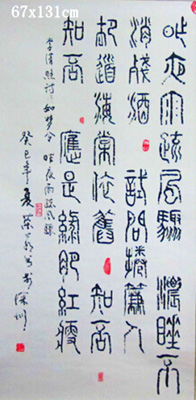 67x131cm
昨夜雨疏風驟 濃睡不
消殘酒 試問捲簾人
却道海棠依舊 知否
知否 應是綠肥紅瘦
李清照詞 如夢令 昨夜雨疏風驟
癸巳年夏 於深圳